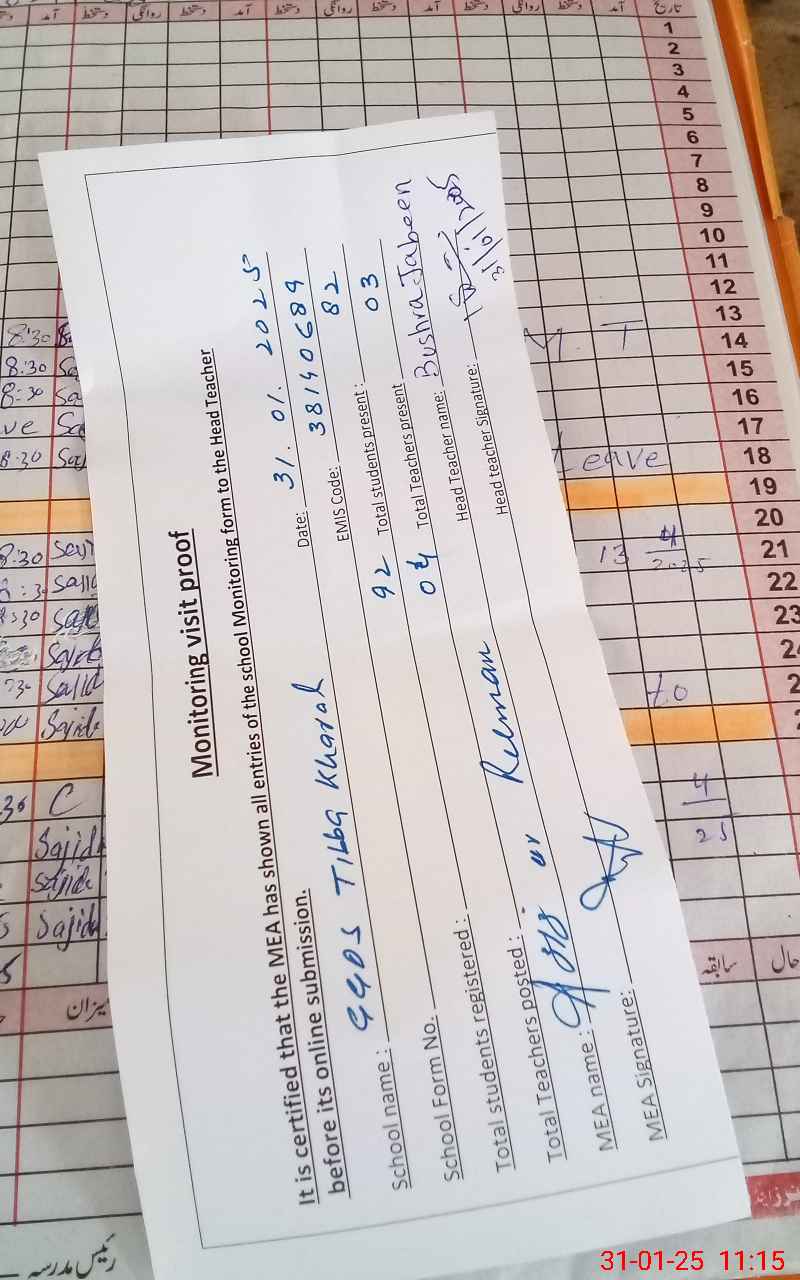 Monitoring visit proof
It is certified that the MEA has shown all entries of the school Monitoring form to the Head Teacher
before its online submission.
Date: 31. 01. 2025
School name : GGPS Tibba Kharal EMIS Code: 38140689
School Form No. Total students present : 82
Total students registered : 92 Total Teachers present 03
Total Teachers posted : 04 Head Teacher name: Bushra Jabeen
MEA name : Aziz ur Rehman Head teacher Signature: 31/01/2025
MEA Signature:
تاریخ
آمد دستخط روانگی دستخط آمد دستخط روانگی دستخط آمد دستخط
1
2
3
4
5
6
7
8
9
10
11
12
13
14
15
16
17
18
19
20
21
22
23
8:30
8:30
8:30
8:30
8:30
Leave
13 4
2025
to
4
25
Sajida
Sajida
Sajida
Sajida
میزان
سابقہ
حال
رئیس مدرسہ
31-01-25 11:15